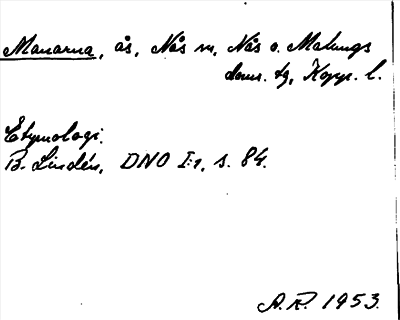 Manarna, ås, Nås sn, Nås o. Malungs
doms. tg, Kopp. l.
Etymologi.
B. Lindén, DNO I:1, s. 84.
A.R. 1953.